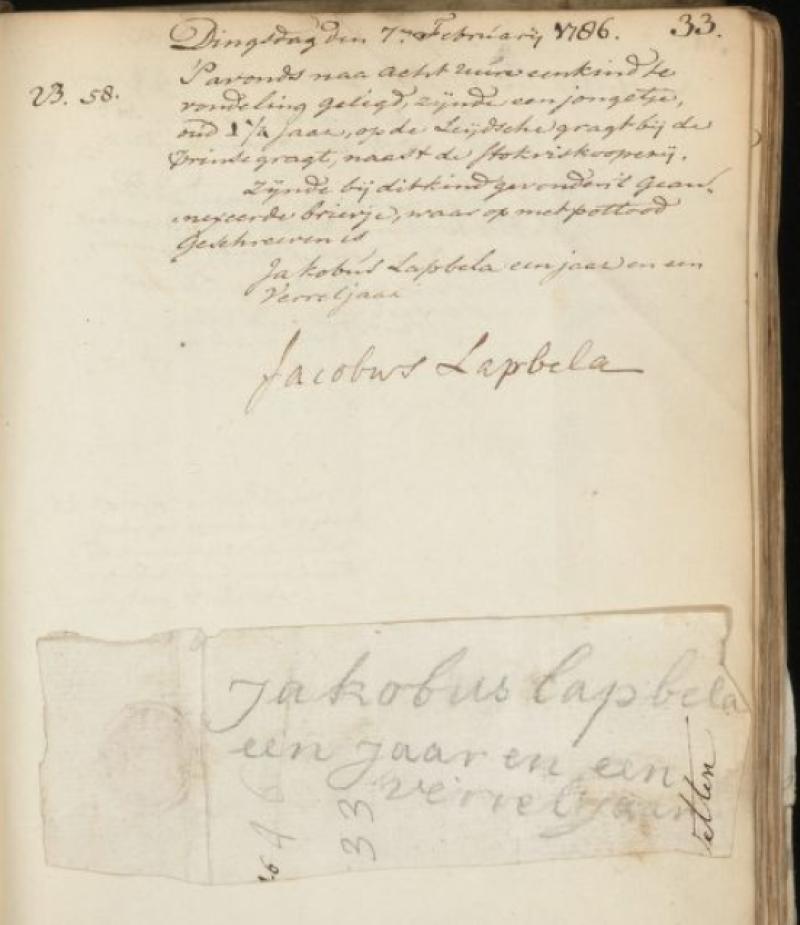 Dingsdag den 7en Februarij 1786. 33.
VB. 58.
'S avonds naa acht uure een kind te
vondeling gelegd, zijnde een jongetje,
oud 1 1/4 Jaar, op de Leijdsche gragt bij de
Prinsegragt, naast de Stokviskooperij.
Zijnde bij dit kind gevonden 't Gean-
nexeerde briefje, waar op met potlood
Geschreeven is
Jakobus Lapbela een jaar en een
Verreljaar
Jacobus Lapbela
Jakobus lapbela
een jaar en een
verreljaar
33